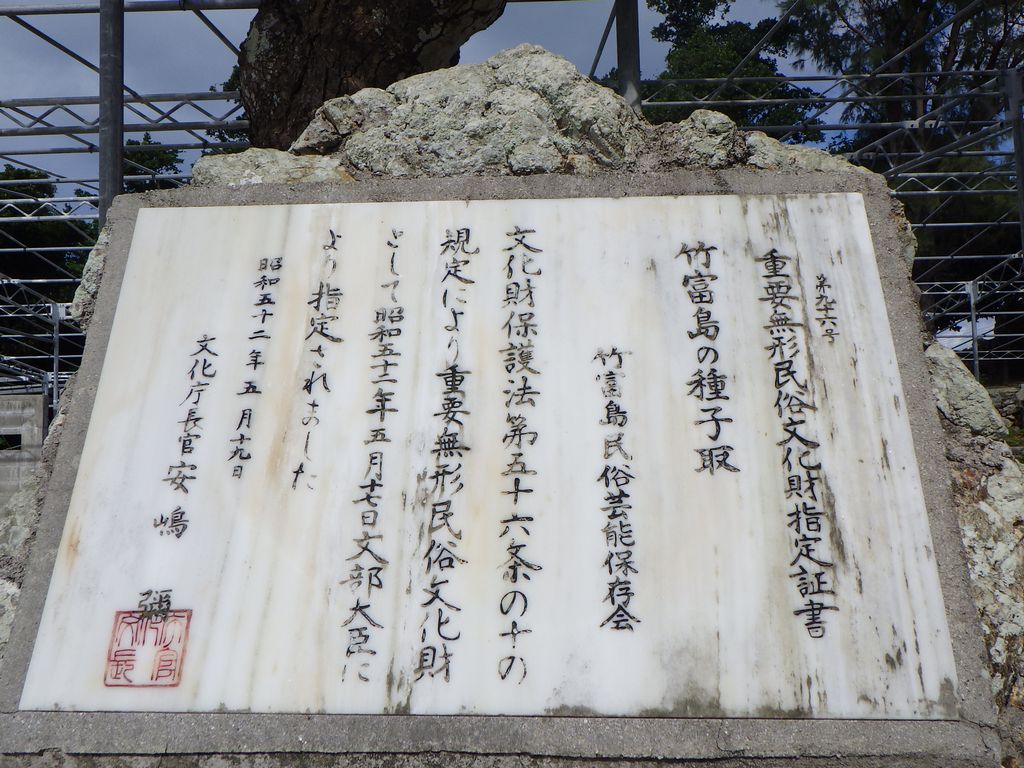 第九十六号
重要無形民俗文化財指定証書
竹富島の種子取
竹富島民俗芸能保存会
文化財保護法第五十六条の十の
規定により重要無形民俗文化財
として昭和五十二年五月十七日文部大臣に
より指定されました
昭和五十二年五月十九日
文化庁長官安嶋
彌